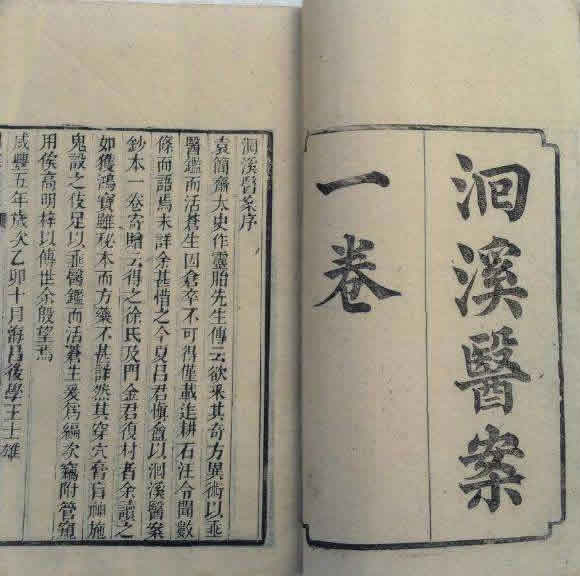 洄溪醫案
一卷
洄溪醫案序
袁簡齋太史作靈胎先生傳云欲采其奇方異術以垂
醫鑑而活蒼生因倉卒不可得僅載迮耕石汪令聞數
條而語焉未詳余甚惜之今夏呂君慎盦以洄溪醫案
鈔本一卷寄贈云得之徐氏及門金君復村者余讀之
如獲鴻寶雖秘本而方藥不甚詳然其穿穴膏肓神施
鬼設之伎足以垂醫鑑而活蒼生爰爲編次竊附管窺
用俟高明梓以傳世余殷望焉
咸豐五年歲次乙卯十月海昌後學王士雄